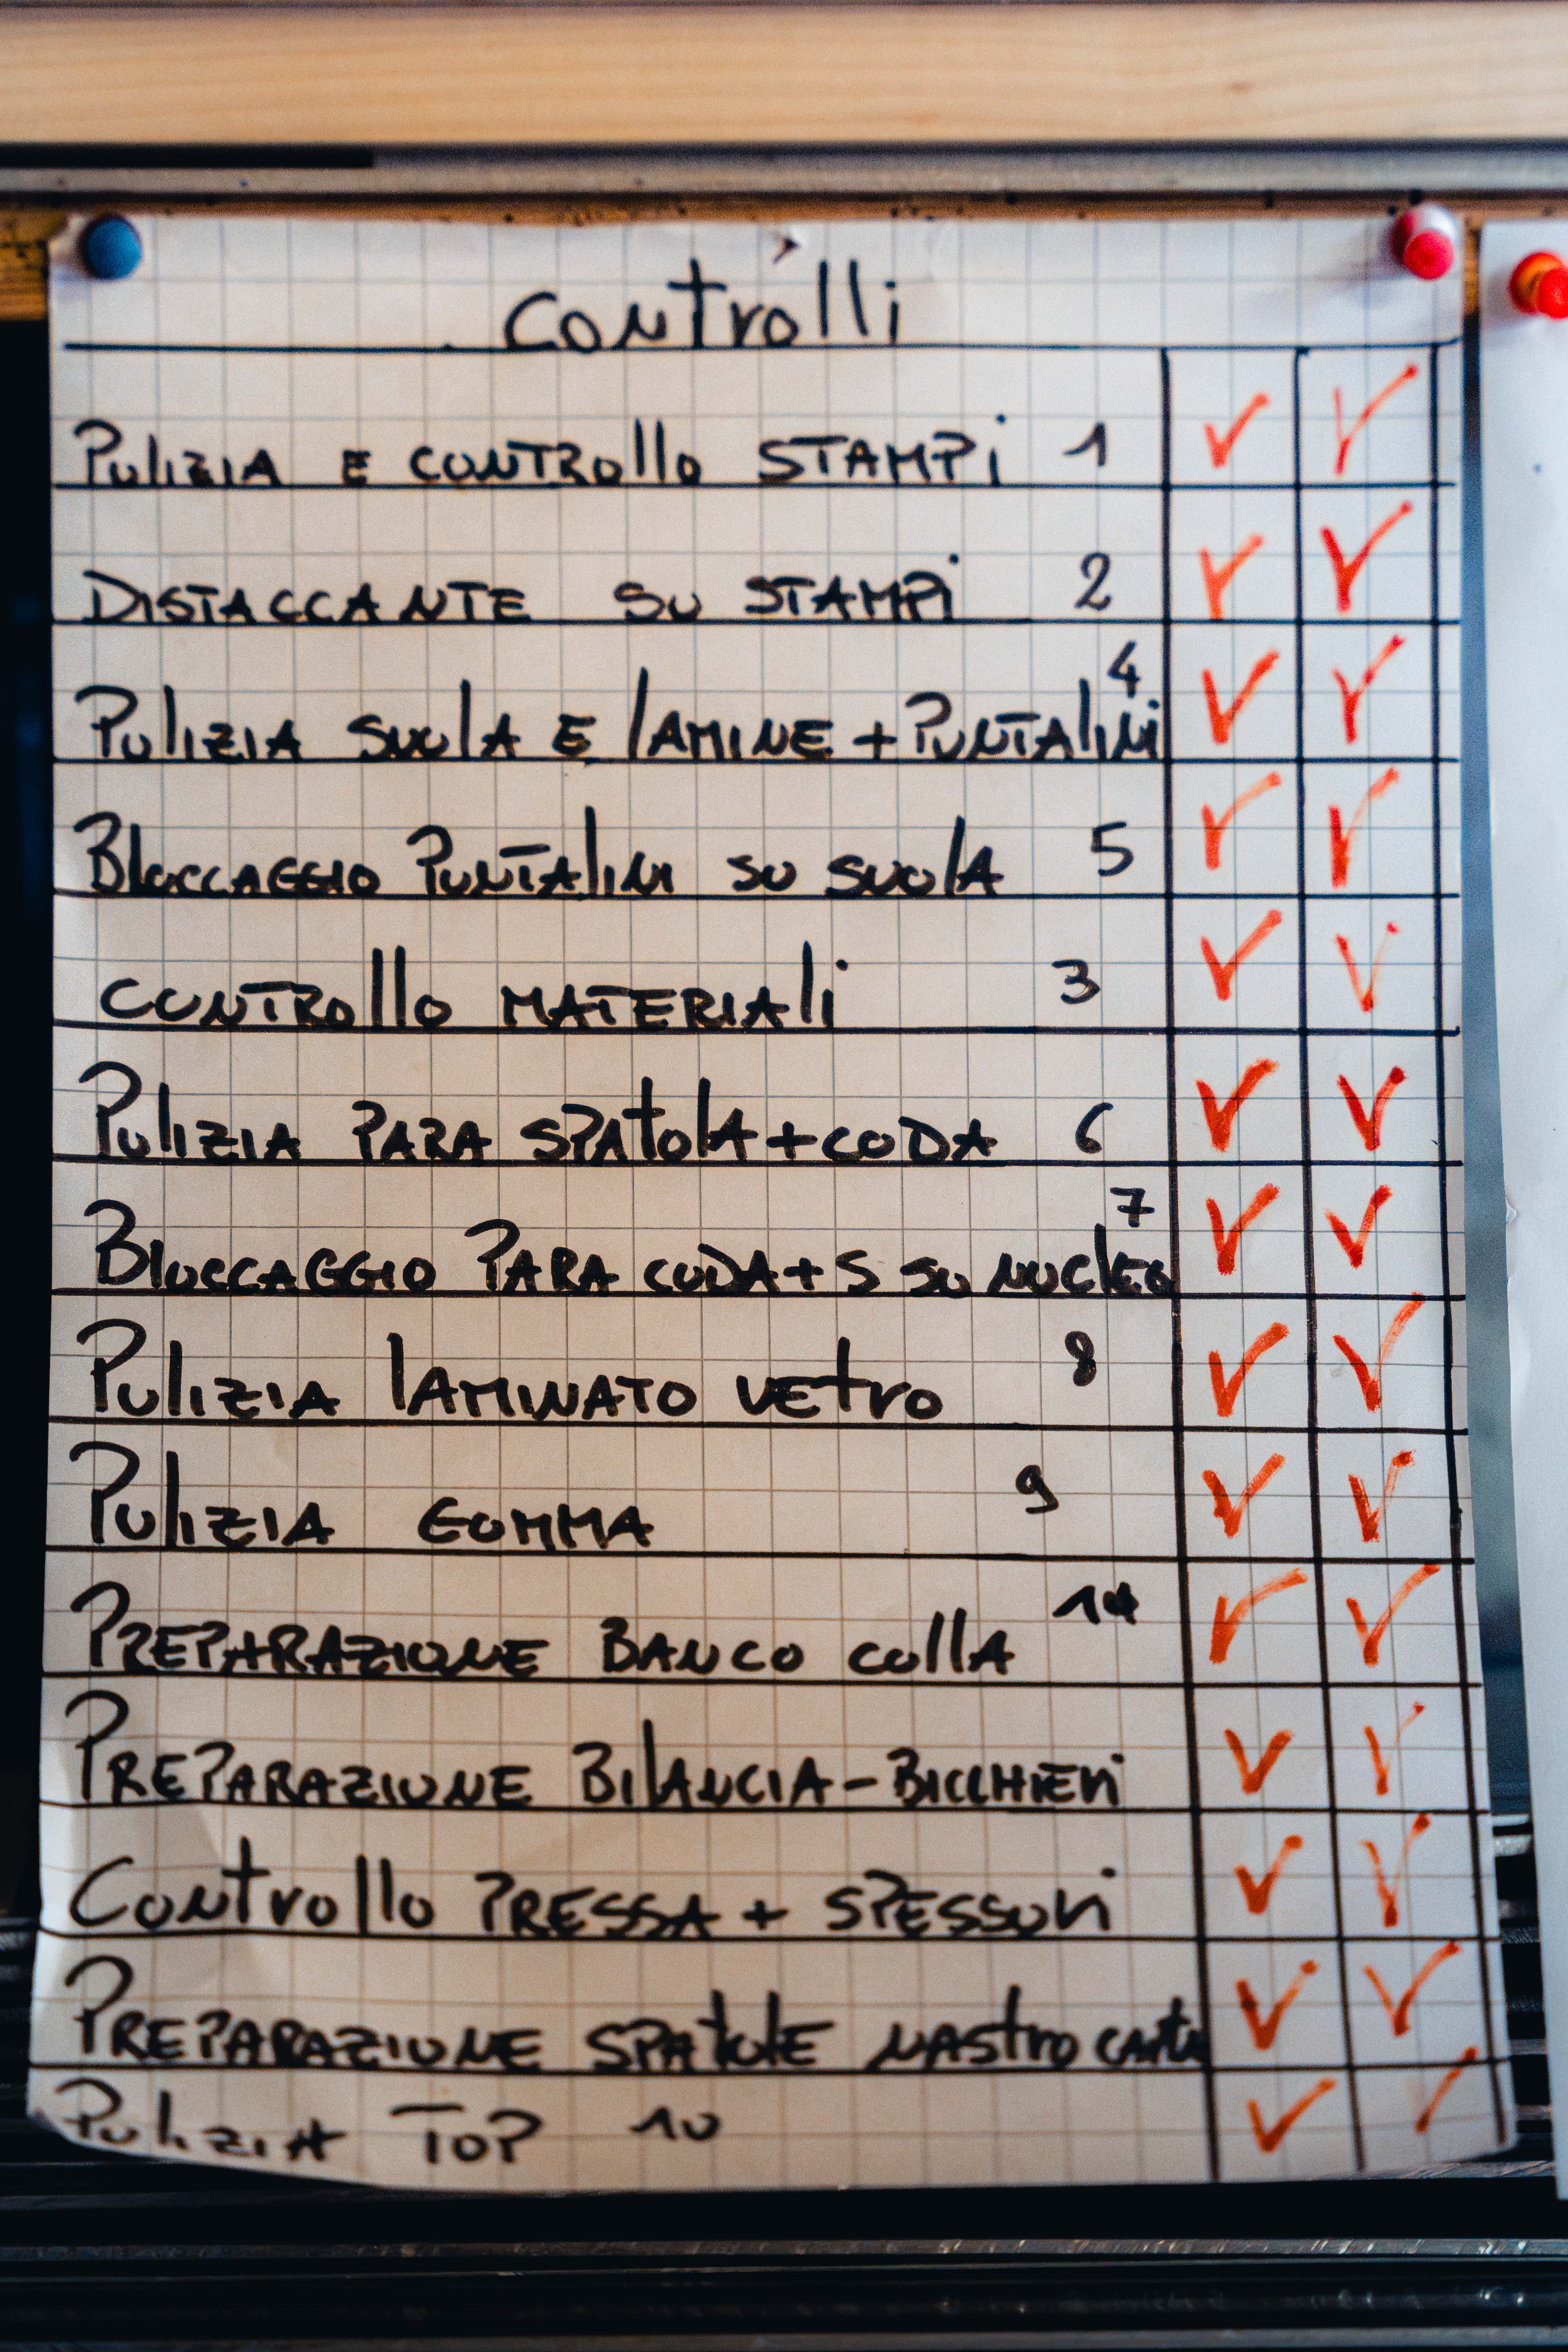 Controlli
Pulizia e controllo STAMPi 1
DISTACCANTE SU STAMPi 2
Pulizia suola e lamine + Puntalini 4
Bloccaggio Puntalini su suola 5
CONTROllo MATERIAli 3
Pulizia PARA SPAtolA + CODA 6
Bloccaggio PARA CODA + S SU NUCleo 7
Pulizia lAMINATO VEtro 8
Pulizia GOMMA 9
PREPARAZIONE BANCO COllA
PREPARAZIONE BilANCIA - BICCHIERi
Controllo PRESSA + SPESSORi
PREPARAZIONE SPAtolE NAStro CARTA
Pulizia TOP 10